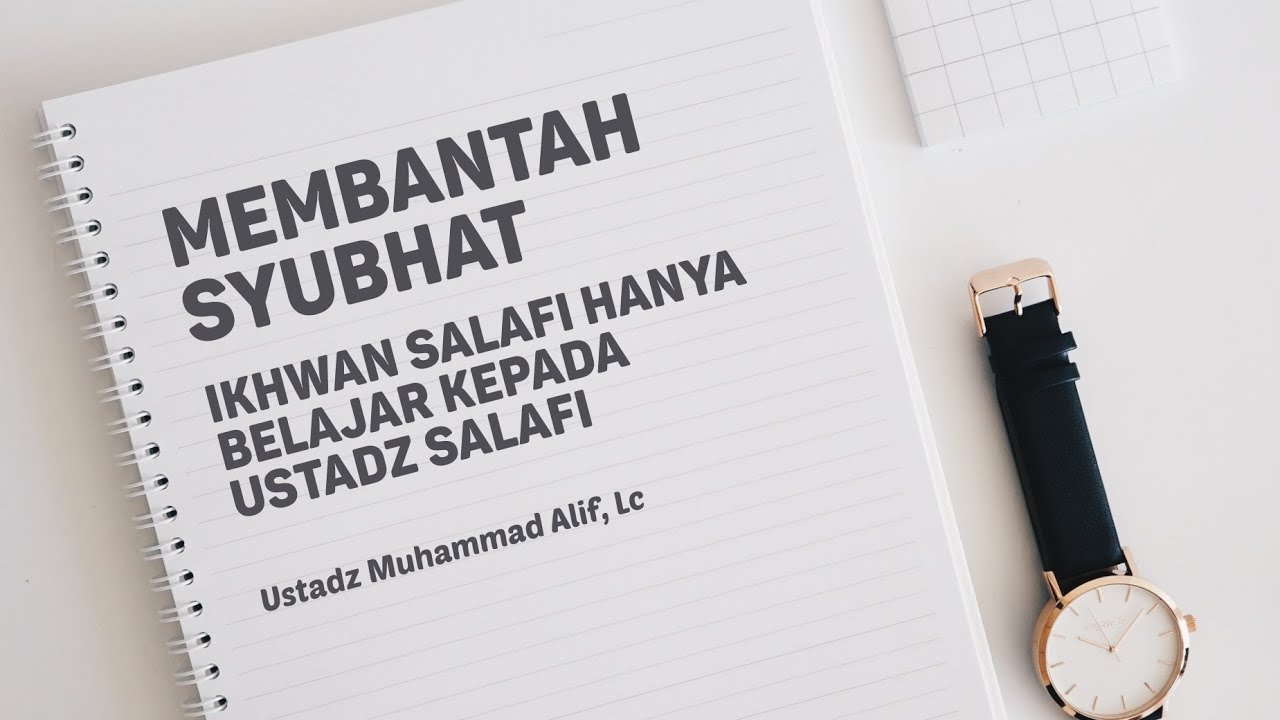 MEMBANTAH
SYUBHAT
IKHWAN SALAFI HANYA
BELAJAR KEPADA
USTADZ SALAFI
Ustadz Muhammad Alif, Lc